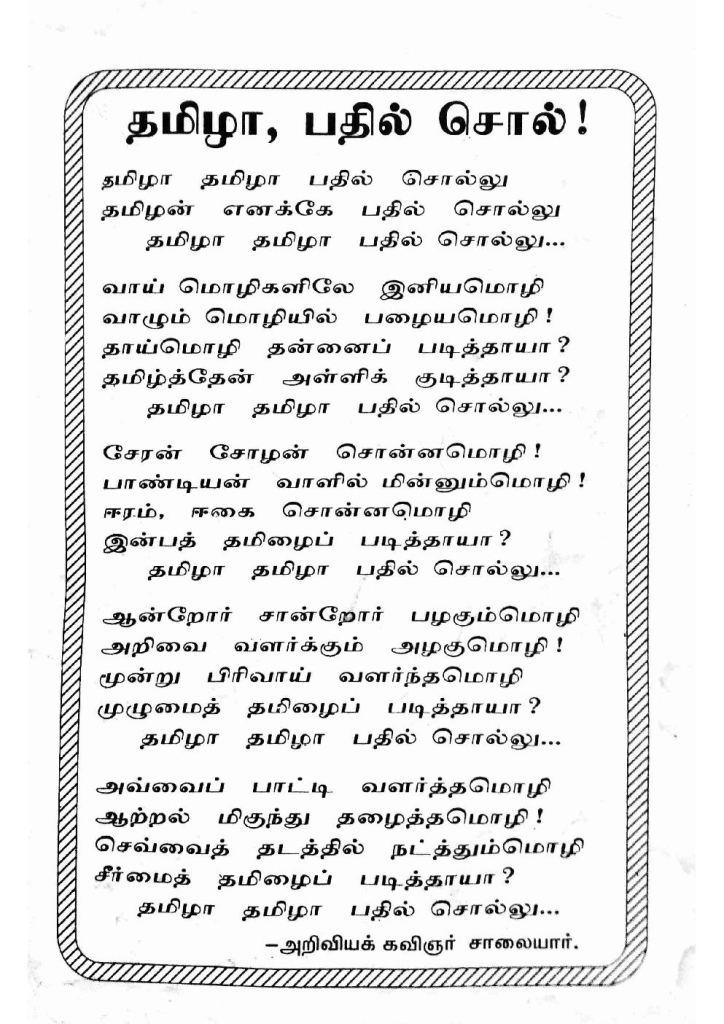 தமிழா, பதில் சொல்!
தமிழா தமிழா பதில் சொல்லு
தமிழன் எனக்கே பதில் சொல்லு
தமிழா தமிழா பதில் சொல்லு...
வாய் மொழிகளிலே இனியமொழி
வாழும் மொழியில் பழையமொழி!
தாய்மொழி தன்னைப் படித்தாயா?
தமிழ்த்தேன் அள்ளிக் குடித்தாயா?
தமிழா தமிழா பதில் சொல்லு...
சேரன் சோழன் சொன்னமொழி!
பாண்டியன் வாளில் மின்னும்மொழி!
ஈரம், ஈகை சொன்னமொழி
இன்பத் தமிழைப் படித்தாயா?
தமிழா தமிழா பதில் சொல்லு...
ஆன்றோர் சான்றோர் பழகும்மொழி
அறிவை வளர்க்கும் அழகுமொழி!
மூன்று பிரிவாய் வளர்ந்தமொழி
முழுமைத் தமிழைப் படித்தாயா?
தமிழா தமிழா பதில் சொல்லு...
அவ்வைப் பாட்டி வளர்த்தமொழி
ஆற்றல் மிகுந்து தழைத்தமொழி!
செவ்வைத் தடத்தில் நட்த்தும்மொழி
சீர்மைத் தமிழைப் படித்தாயா?
தமிழா தமிழா பதில் சொல்லு...
–அறிவியக் கவிஞர் சாலையார்.